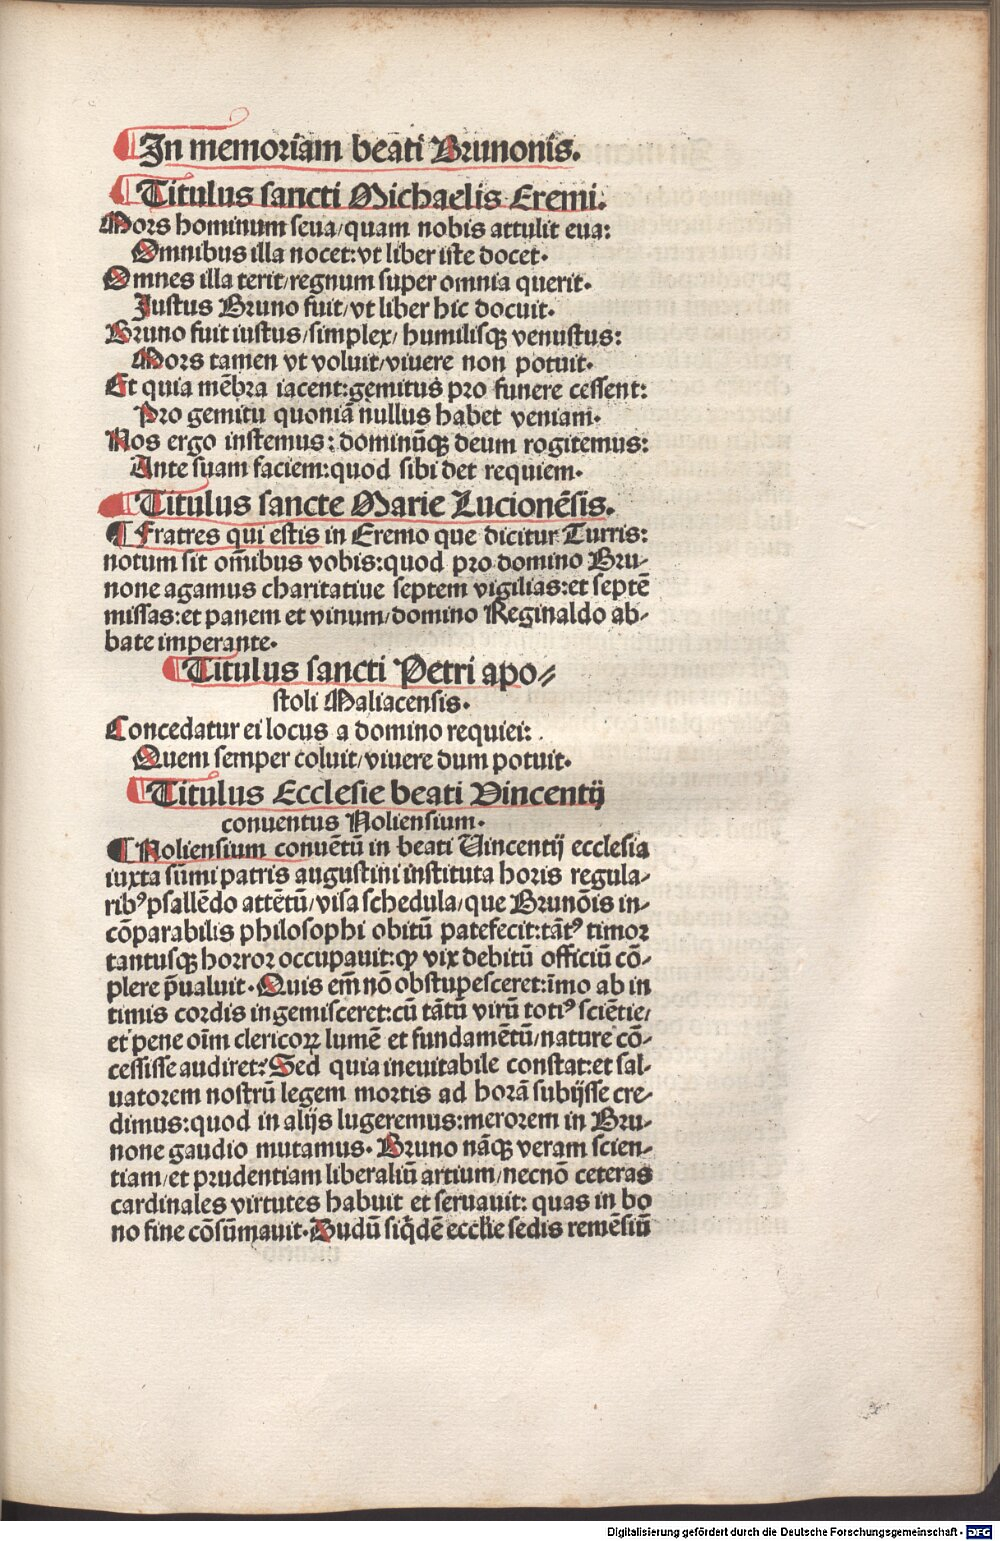 In memoriam beati Brunonis.
Titulus sancti Michaelis Eremi.
Mors hominum seua/quam nobis attulit eua:
Omnibus illa nocet: vt liber iste docet.
Omnes illa terit/regnum super omnia querit.
Justus Bruno fuit/vt liber hic docuit.
Bruno fuit iustus/simplex/humilisqꝫ venustus:
Mors tamen vt voluit/viuere non potuit.
Et quia mēbra iacent: gemitus pro funere cessent:
Pro gemitu quoniā nullus habet veniam.
Nos ergo instemus: dominūqꝫ deum rogitemus:
Ante suam faciem: quod sibi det requiem.
Titulus sancte Marie Lucionēsis.
¶ Fratres qui estis in Eremo que dicitur Turris:
notum sit om̄ibus vobis: quod pro domino Bru-
none agamus charitatiue septem vigilias: et septē
missas: et panem et vinum/domino Reginaldo ab-
bate imperante.
Titulus sancti Petri apo-
stoli Maliacensis.
Concedatur ei locus a domino requiei:
Quem semper coluit/viuere dum potuit.
Titulus Ecclesie beati Vincentij
conuentus Noliensium.
¶ Noliensium conuētū in beati Vincentij ecclesia
iuxta sūmi patris augustini instituta horis regula-
ribꝰ psallēdo attētū/visa schedula/que Brunōis in-
cōparabilis philosophi obitū patefecit: tātꝰ timor
tantusqꝫ horror occupauit: ꝙ vix debitū officiū cō-
plere p̄ualuit. Quis em̄ nō obstupesceret: īmo ab in
timis cordis ingemisceret: cū tātū virū totiꝰ sciētie/
et pene oīm clericoꝝ lumē et fundamētū/nature cō-
cessisse audiret? Sed quia ineuitabile constat: et sal-
uatorem nostrū legem mortis ad horā subijsse cre-
dimus: quod in alijs lugeremus: merorem in Bru-
none gaudio mutamus. Bruno nāqꝫ veram scien-
tiam/et prudentiam liberaliū artium/necnō ceteras
cardinales virtutes habuit et seruauit: quas in bo
no fine cōsūmauit. Nudū siq̄dē ecclie sedis remēsiū
Digitalisierung gefördert durch die Deutsche Forschungsgemeinschaft - DFG